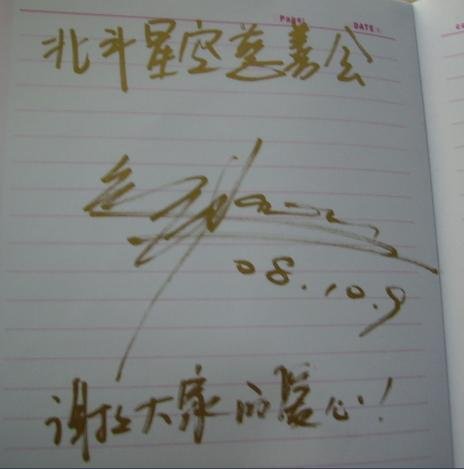 PAGE:
DATE:
北斗星空慈善会
08.10.9
谢谢大家的爱心!